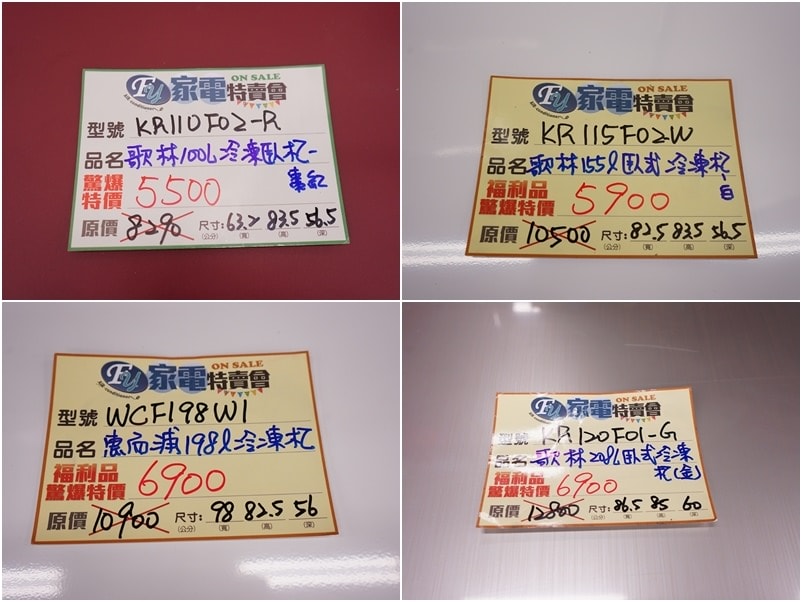 Fy 家電特賣會 ON SALE
型號 KR110F02-R
品名 歌林100L冷凍臥柜-
棗紅
驚爆特價 5500
原價 8290 尺寸:(公分) 63.7(寬) 83.5(高) 56.5(深)
Fy 家電特賣會 ON SALE
型號 KR115F02W
品名 歌林155l臥式冷凍柜
白
福利品
驚爆特價 5900
原價 10500 尺寸:(公分) 82.5(寬) 83.5(高) 56.5(深)
Fy 家電特賣會 ON SALE
型號 WCF198W1
品名 惠而浦198l冷凍柜
福利品
驚爆特價 6900
原價 10900 尺寸:(公分) 98(寬) 82.5(高) 56(深)
Fy 家電特賣會 ON SALE
型號 KR120F01-G
品名 歌林208L臥式冷凍
柜(金)
福利品
驚爆特價 6900
原價 12800 尺寸:(公分) 86.5(寬) 85(高) 60(深)